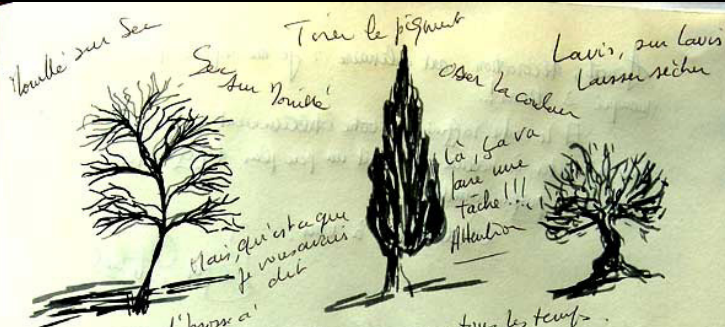 Mouillé sur Sec
Sec
sur Mouillé
Tirer le pigment
Oser la couleur
Lavis, sur Lavis
Laisser sécher
Là, ça va
faire une
tâche!!!
Attention
Mais, qu'est ce que
je vous avais
dit
tous les temps.